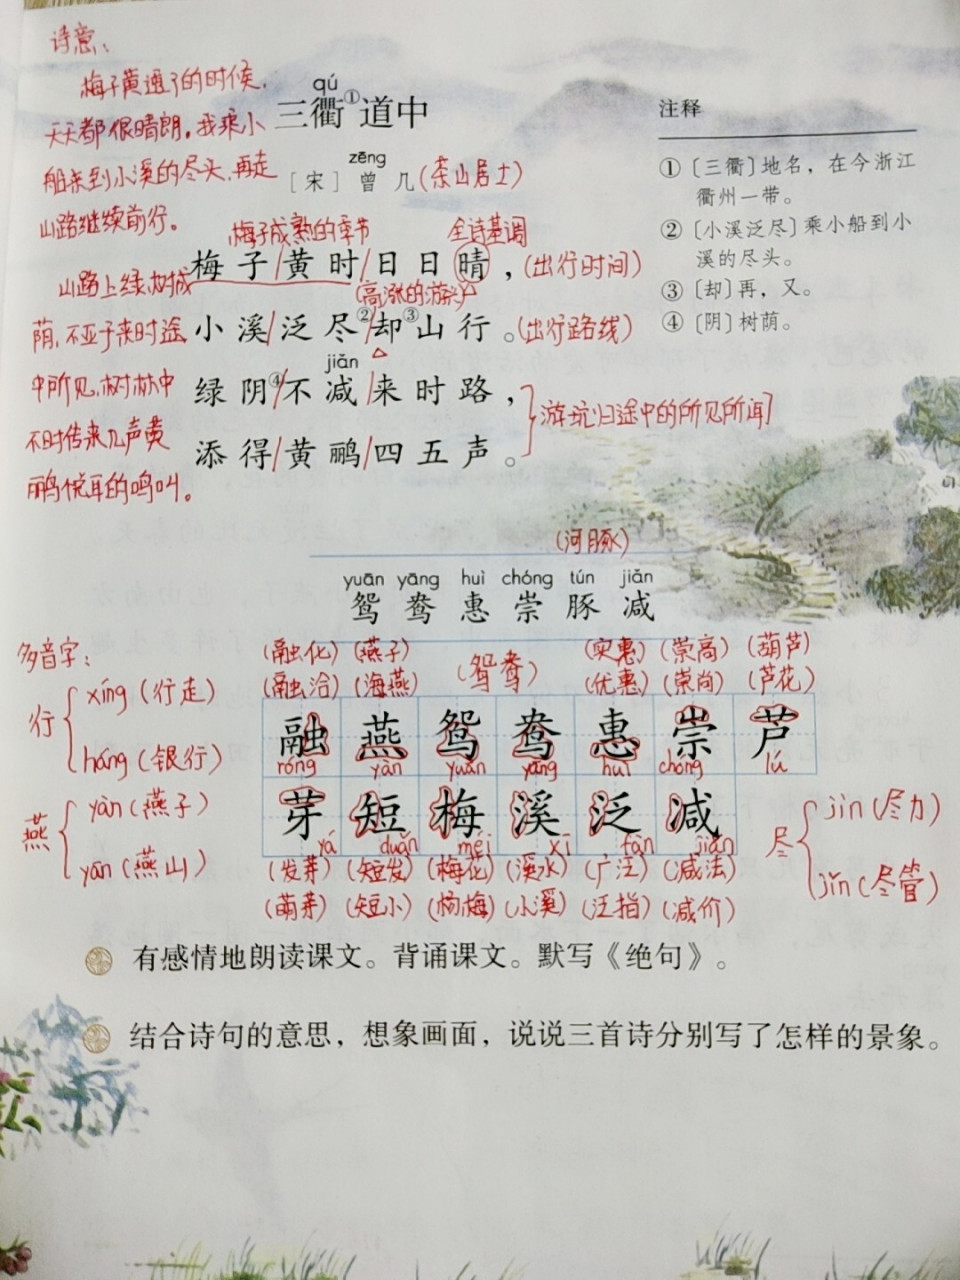 诗意：
梅子黄透了的时候，
天天都很晴朗。我乘小
船来到小溪的尽头，再走
山路继续前行。
山路上绿树成
荫，不亚于来时途
中所见，树林中
不时传来几声黄
鹂悦耳的鸣叫。
qú
三衢①道中
zēng
［宋］曾几（茶山居士）
梅子成熟的季节 全诗基调
梅子/黄时/日日晴，（出行时间）
（高涨的游兴）
小溪/泛尽②/却③山行。（出行路线）
jiǎn
绿阴④/不减/来时路，
添得/黄鹂/四五声。
游玩归途中的所见所闻
注释
①〔三衢〕地名，在今浙江
衢州一带。
②〔小溪泛尽〕乘小船到小
溪的尽头。
③〔却〕再，又。
④〔阴〕树荫。
（河豚）
yuān yāng huì chóng tún jiǎn
鸳 鸯 惠 崇 豚 减
多音字：
行 xíng（行走）
háng（银行）
燕 yàn（燕子）
yān（燕山）
（融化）（燕子）（鸳鸯）（实惠）（崇高）（葫芦）
（融洽）（海燕）（优惠）（崇尚）（芦花）
融 燕 鸳 鸯 惠 崇 芦
róng yàn yuān yāng huì chóng lú
芽 短 梅 溪 泛 减
yá duǎn méi xī fàn jiǎn
（发芽）（短发）（梅花）（溪水）（广泛）（减法）
（萌芽）（短小）（杨梅）（小溪）（泛指）（减价）
尽 jìn（尽力）
jǐn（尽管）
有感情地朗读课文。背诵课文。默写《绝句》。
结合诗句的意思，想象画面，说说三首诗分别写了怎样的景象。